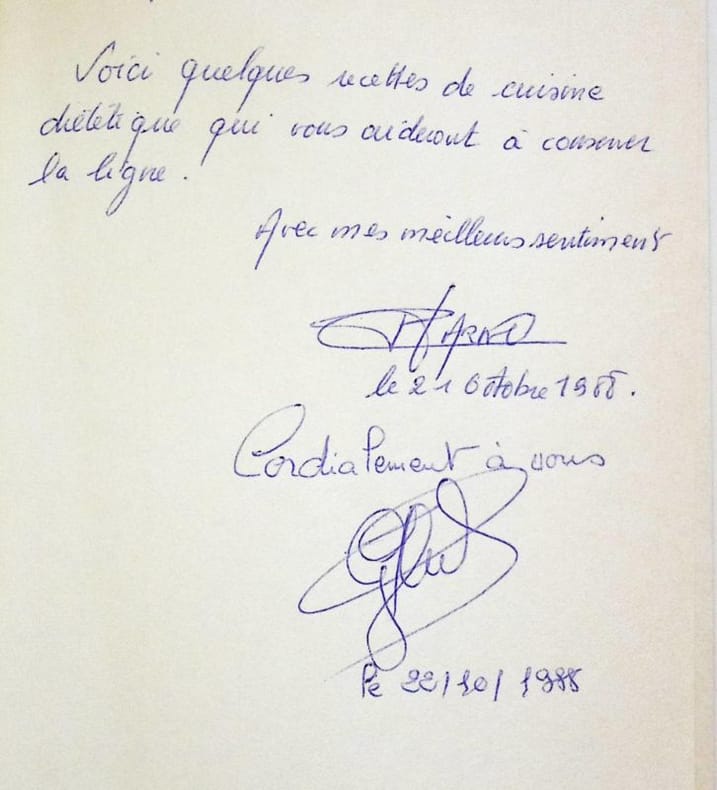 Voici quelques recettes de cuisine
diététique qui vous aideront à conserver
la ligne.
Avec mes meilleurs sentiments
le 21 Octobre 1988.
Cordialement à vous
le 22/10/1988